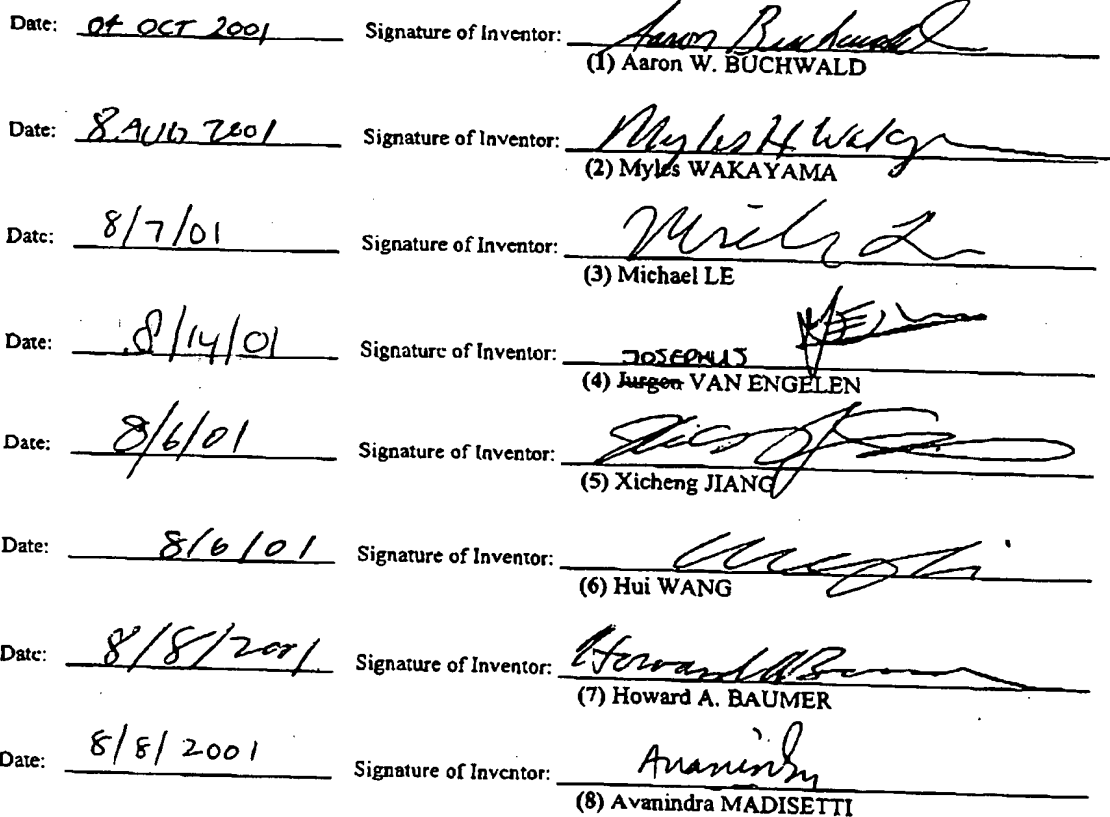 Date: 04 OCT 2001 Signature of Inventor: Aaron Buchwald
(1) Aaron W. BUCHWALD
Date: 8 AUG 2001 Signature of Inventor: Myles H Wakayama
(2) Myles WAKAYAMA
Date: 8/7/01 Signature of Inventor:
(3) Michael LE
Date: 8/14/01 Signature of Inventor:
JOSEPHUS
(4) Jurgen VAN ENGELEN
Date: 8/6/01 Signature of Inventor:
(5) Xicheng JIANG
Date: 8/6/01 Signature of Inventor:
(6) Hui WANG
Date: 8/8/2001 Signature of Inventor: Howard A Baumer
(7) Howard A. BAUMER
Date: 8/8/2001 Signature of Inventor:
(8) Avanindra MADISETTI